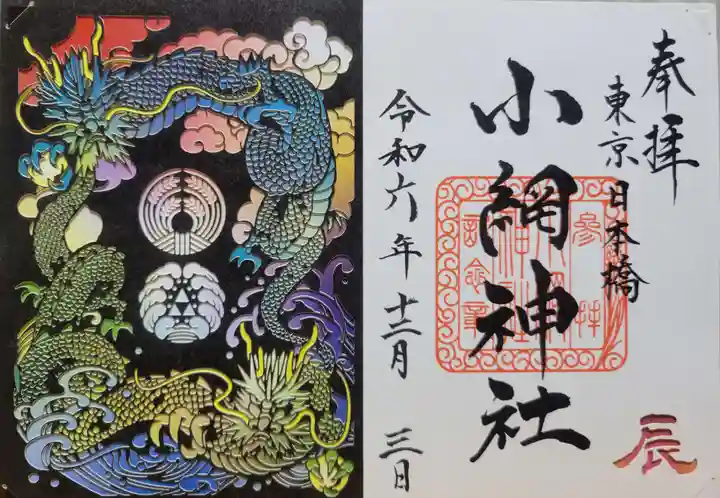 奉拝
東京 日本橋
小網神社
令和六年 十二月 三日
辰